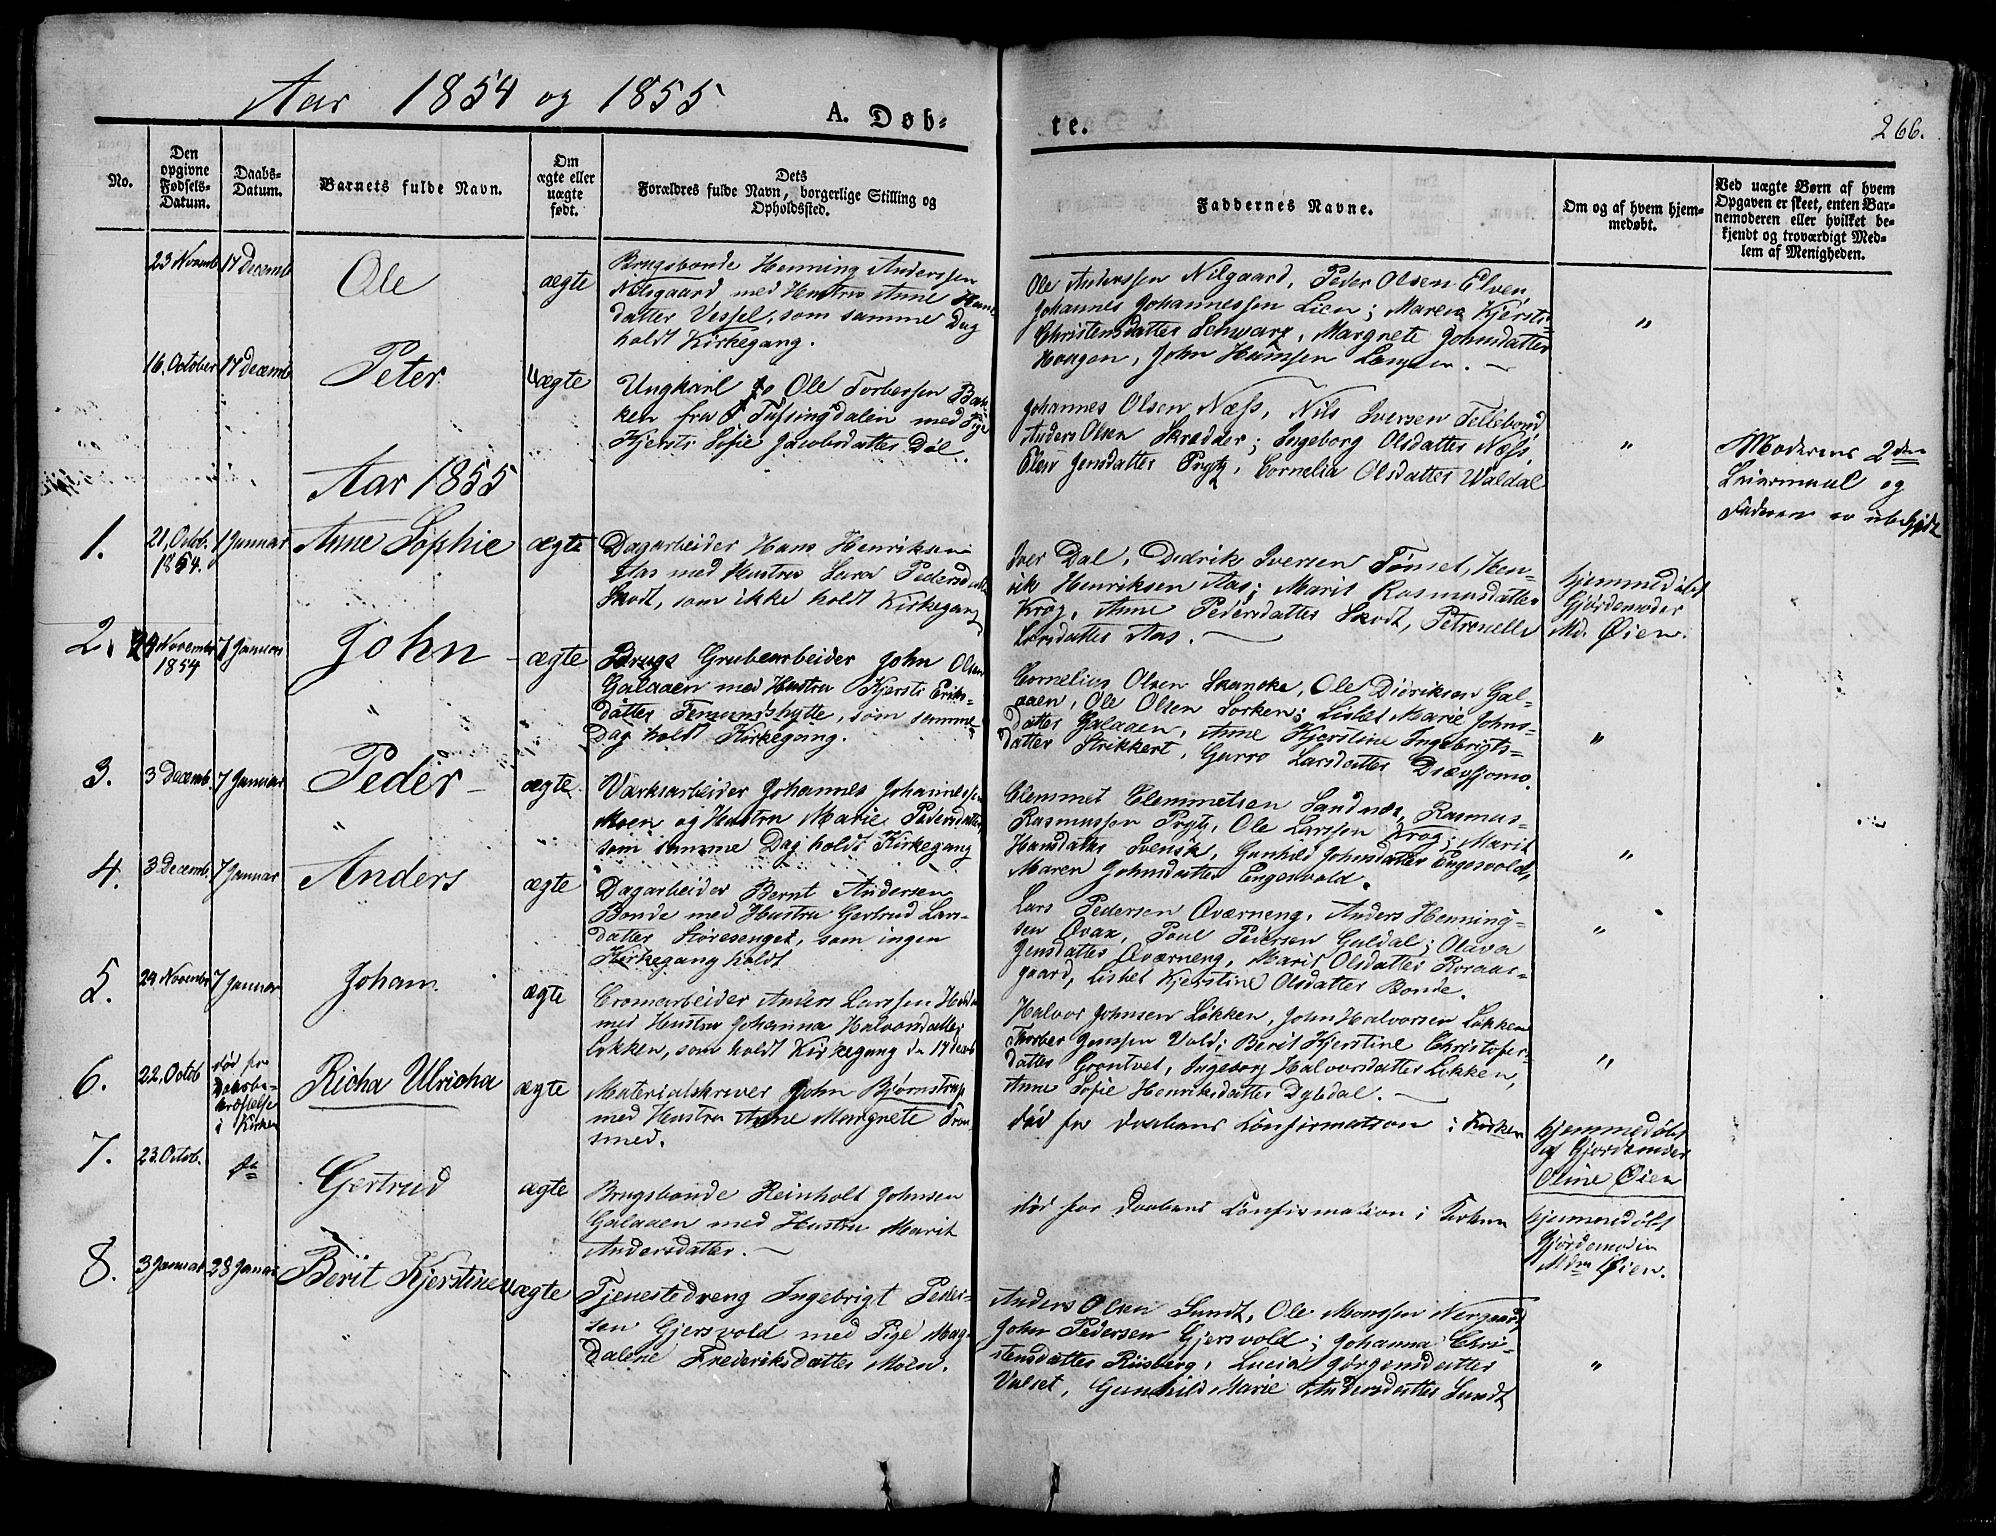 Aar 1854 og 1855
A. Døb-
te.
266.
No.
Den
opgivne
Fødsels-
Datum.
Daabs-
Datum.
Barnets fulde Navn.
Om
ægte eller
uægte
født.
Dets
Forældres fulde Navn, borgerlige Stilling og
Opholdssted.
Faddernes Navne.
Om og af hvem hjem-
medøbt.
Ved uægte Børn af hvem
Opgaven er skeet, enten Bar-
nemoderen eller hvilket be-
kjendt og troværdigt Med-
lem af Menigheden.
23 Novemb
17 Decemb
Ole
ægte
Brugsbonde Henning Anderssen
Nilsgaard med Hustru Anne Hans
datter Vessel, som samme Dag
holdt Kirkegang.
Ole Anderssen Nilgaard, Peder Olsen Elven
Johannes Johannessen Lien; Maren Kjersti
Christensdatter Schwarz, Margrete Johnsdatter
Haagen, John Hansen
"
16. October
17 Decemb
Peter
Uægte
Ungkarl Ole Torbersen Bak-
ken fra Tufsingdalen med Pige
Kjersti Sofie Jacobsdatter Dal.
Johannes Olsen Næss, Nils Iversen Tellebond
Anders Olsen Skrædder; Ingeborg Olsdatter Næss,
Elen Jensdatter Prytz, Cornelia Olsdatter Waldal
"
Moderens 2den
Leiermaal og
Faderen er
Aar 1855
1.
21. Octob.
1854.
1 Januar
Anne Sophie
ægte
Dagarbeider Hans Henriksen
Aas med Hustru Sara Pedersdatter
Skodt, som ikke holdt Kirkegang
Iver Dal, Didrik Iversen Tønset, Hen-
rik Henriksen Aas; Marit Rasmusdatter
Krog, Anne Pedersdatter Skodt, Petronelle
Larsdatter Aas.
hjemmedøbt
Gjordemoder
Md. Øien.
2.
29 November
1854
7 Januar
John
ægte
Brugs Grubearbeider John Olsen
Galaaen med Hustru Kjersti Eriks-
datter Femundshytte, som samme
Dag holdt Kirkegang.
Cornelius Olsen Skancke, Ole Didriksen Gal-
aaen, Ole Olsen Sorken; Lisbet Marie Johns-
datter Galaaen, Anne Kjerstine Ingebrigts-
datter Strikkert, Gurro Larsdatter Dravsjomo.
"
3.
3 Decemb.
7 Januar
Peder
ægte
Værksarbeider Johannes Johannessen
Moen og Hustru Marie Pedersdatter
som samme Dag holdt Kirkegang
Clemmet Clemmetsen Sandnæs, Rasmus
Rasmussen Prytz, Ole Larssen Krog; Marit
Hansdatter Svensk, Gunhild Johnsdatter Engesvold,
Maren Johnsdatter Engesvold.
"
4.
3 Decemb.
7 Januar
Anders
ægte
Dagarbeider Bernt Andersen
Bonde med Hustru Gertrud Lars-
datter Støresenget, som ingen
Kirkegang holdt
Lars Pedersen Qværneng, Anders Henning-
sen Qvax, Poul Pedersen Guldal; Olava
Jensdatter Qværneng, Marit Olsdatter Roraas-
gaard, Lisbet Kjerstine Olsdatter Bonde.
"
5.
24 Novembr
7 Januar
Johan
ægte
Cromarbeider Anders Larssen
med Hustru Johanna Halvorsdatter
Løkken, som holdt Kirkegang 17 decb
Halvor Johnsen Løkken, John Halvorsen Løkken
Thorber Jenssen Vold; Berit Kjerstine Christofers-
datter Grøntvet, Ingeborg Halvorsdatter Løkken,
Anne Sofie Henriksdatter Dybdal.
"
6.
22. Octob
død før
Daabsbe-
kræftelse
i Kirken
Richa Ulricha
ægte
Materialskriver John Bjørnstrup
med Hustru Anne Margrete Tron
smed.
død før Daabens Confirmation i Kirken
hjemmedøbt
af Gjordemoder
Oline Øien
7.
23. Octob.
do
Gertrud
ægte
Brugsbonde Reinholt Johnsen
Galaaen med Hustru Marit
Andersdatter.
død før Daabens Confirmation i Kirken
hjemmedøbt
Gjordemoder
Mdm Øien.
8.
3 Januar
28 Januar
Berit Kjerstine
Uægte
Tjenestedreng Ingebrigt Peder-
sen Gjersvold med Pige Mag-
dalene Frederiksdatter Moen.
Anders Olsen Sundt, Ole Monssen Nergaard,
John Pedersen Gjersvold; Johanna Chri-
stensdatter Riisberg, Lucia Jørgensdatter
Valset, Gunhild Marie Andersdatter Sundt
"